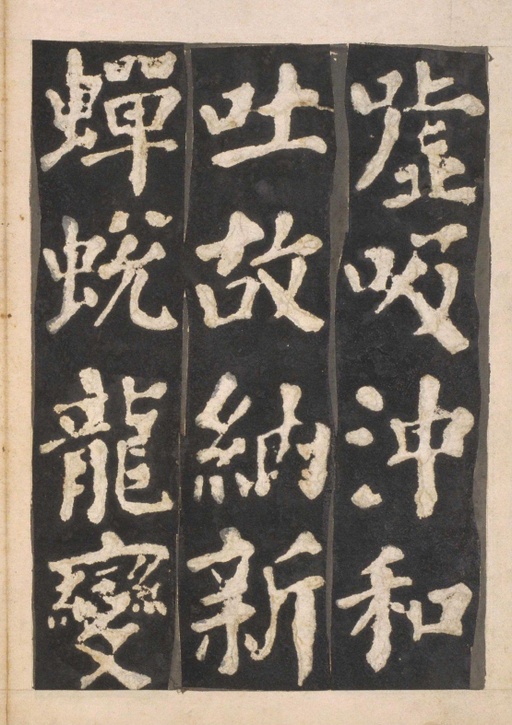 嘘吸沖和
吐故納新
蟬蛻龍變